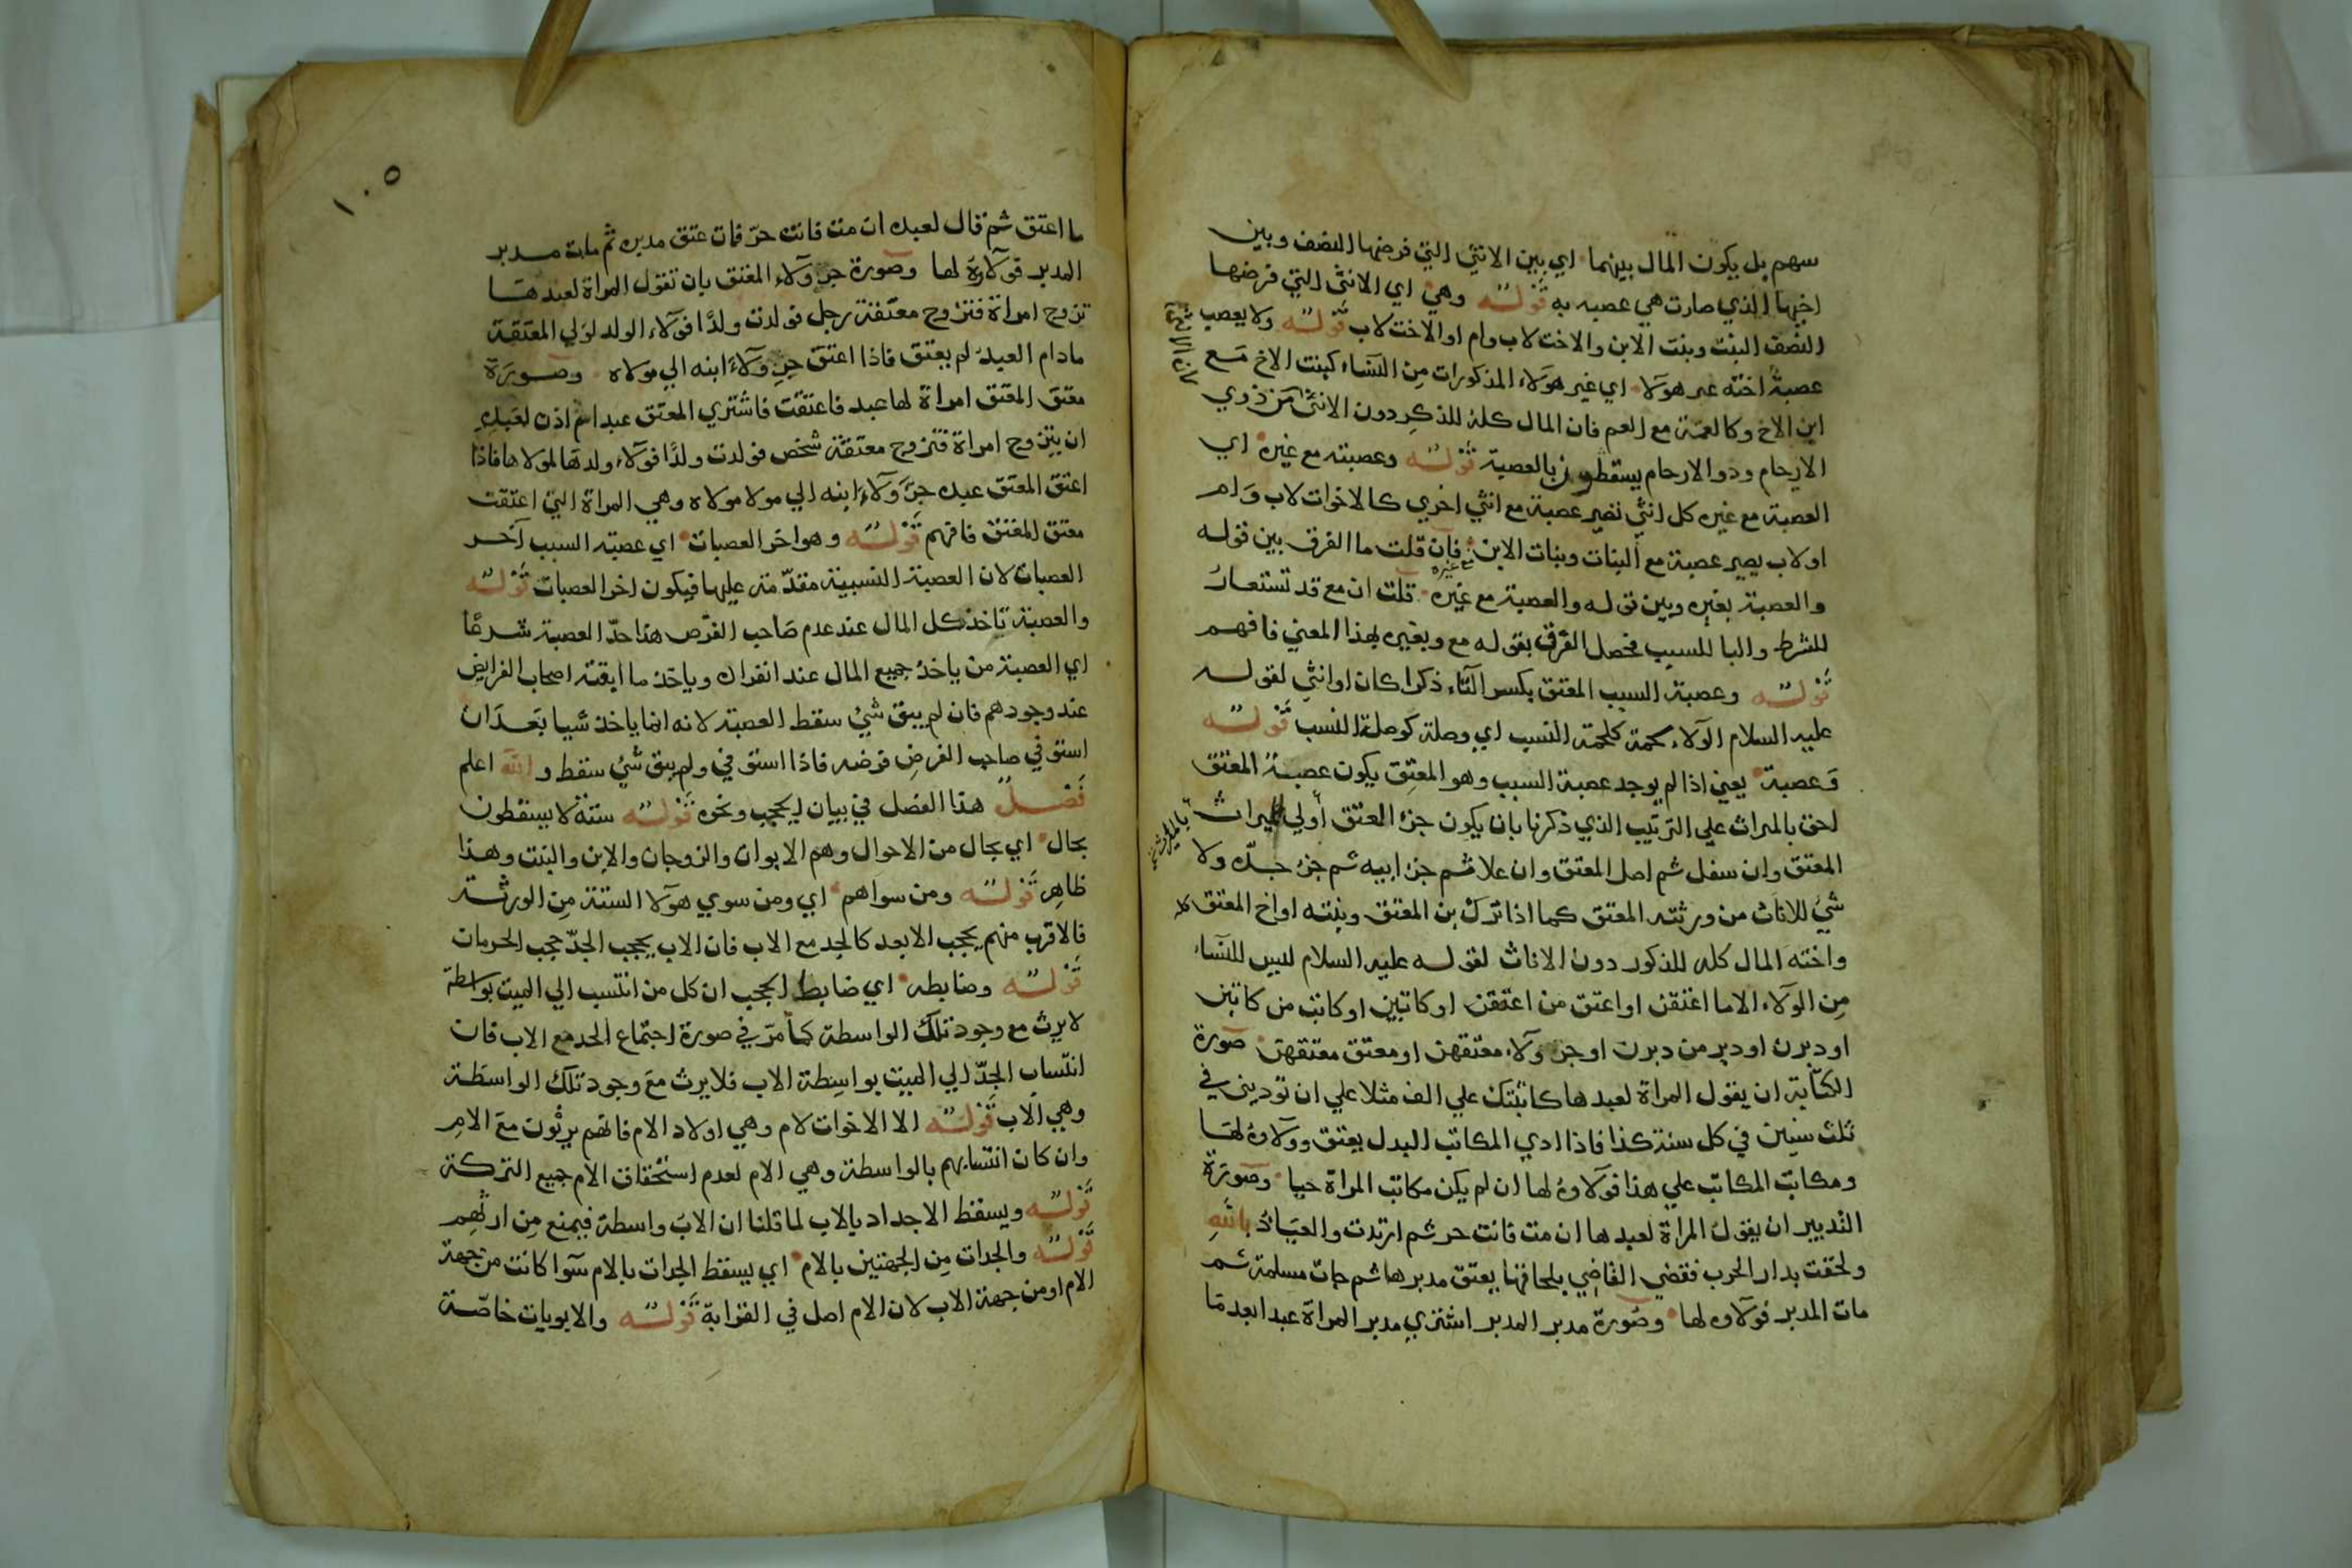 سهم بل يكون المال بينهما اي بين الانثي التي فرضها النصف وبين
اخيها الذي صارت هي عصبه به قوله وهي اي الانثي التي فرضها
النصف البنت وبنت الابن والاخت لاب وام او الاخت لاب قوله ولا يعصب
عصبة اخته غير هولاء اي غير هولاء المذكورات من النساء كبنت الاخ مع
ابن الاخ وكالعمة مع العم فان المال كله للذكر دون الانثي من ذوي
الارحام وذوالارحام يسقطون بالعصبة قوله وعصبته مع غيره اي
العصبة مع غيره كل انثي تصير عصبة مع انثي اخري كالاخوات لاب وام
او لاب يصير عصبة مع البنات وبنات الابن فان قلت ما الفرق بين قوله
والعصبة بغيره وبين قوله والعصبة مع غيره قلت ان مع قد تستعار
للشرط والبا للسبب فحصل الفرق بقوله مع وبغيره بهذا المعني فافهم
قوله وعصبة السبب المعتق بكسر التاء ذكرا كان او انثي لقوله
عليه السلام الولاء لحمة كلحمة النسب اي وصلة كوصلة النسب قوله
وعصبة يعني اذا لم يوجد عصبة السبب وهو المعتق يكون عصبة المعتق
احق بالميراث علي الترتيب الذي ذكرنا بان يكون جزء المعتق أولي بالميراث
المعتق وان سفل ثم اصل المعتق وان علا ثم جزء ابيه ثم جزء جده ولا
شئ للاناث من ورثته المعتق كما اذا ترك بن المعتق وبنته او اخ المعتق
واخته المال كله للذكور دون الاناث لقوله عليه السلام ليس للنساء
من الولاء الا ما اعتقن او اعتق من اعتقن او كاتبن او كاتب من كاتبن
او دبرن او دبر من دبرن او جر ولاء معتقهن او معتق معتقهن صورة
الكتابة ان يقول المراة لعبدها كاتبتك علي الف مثلا علي ان توديني في
ثلث سنين في كل سنة كذا فاذا ادي المكاتب البدل يعتق وولاوه لها
ومكاتب المكاتب علي هذا فولاوه لها ان لم يكن مكاتب المراة حيا وصورة
التدبير ان يقول المراة لعبدها ان مت فانت حر ثم ارتدت والعياذ بالله
ولحقت بدار الحرب فقضي القاضي بلحاقها يعتق مدبرها ثم جات مسلمة ثم
مات المدبر فولاوه لها وصورة مدبر المدبر اشتري مدبر المراة عبدا بعد ما
١٠٥
ما اعتق ثم قال لعبده ان مت فانت حر فمات عتق مدبره ثم مات مدبر
المدبر فولاوه لها وصورة جر ولاء المعتق بان تقول المراة لعبدها
تزوج امراة فتزوج معتقة رجل فولدت ولدا فولاء الولد لولي المعتقة
مادام العبد لم يعتق فاذا اعتق جر ولاء ابنه الي مولاه وصورة
معتق المعتق امراة لها عبد فاعتقت فاشتري المعتق عبدا ثم اذن لعبده
ان يتزوج امراة فتزوج معتقة شخص فولدت ولدا فولاء ولدها لمولاها فاذا
اعتق المعتق عبده جر ولاء ابنه الي مولا مولاه وهي المراة التي اعتقت
معتق المعتق فافهم قوله وهو اخر العصبات اي عصبته السبب آخر
العصبات لان العصبة النسبية مقدمة عليها فيكون اخر العصبات قوله
والعصبة تاخذ كل المال عند عدم صاحب الفرض هذا حد العصبة شرعا
اي العصبة من ياخذ جميع المال عند انفراده وياخذ ما ابقته اصحاب الفرايض
عند وجودهم فان لم يبق شئ سقط العصبة لانه انما ياخذ شيا بعد ان
استوفي صاحب الفرض فرضه فاذا استوفي ولم يبق شئ سقط والله اعلم
فصل هذا الفصل في بيان الحجب ونحوه قوله ستة لا يسقطون
بحال اي بحال من الاحوال وهم الابوان والزوجان والابن والبنت وهذا
ظاهر قوله ومن سواهم اي ومن سوي هولا الستة من الورثة
فالاقرب منهم يحجب الابعد كالجد مع الاب فان الاب يحجب الجد حجب الحرمان
قوله وضابطه اي ضابط الحجب ان كل من انتسب الي الميت بواسطة
لا يرث مع وجود تلك الواسطة كما مر في صورة اجتماع الجد مع الاب فان
انتساب الجد الي الميت بواسطة الاب فلا يرث مع وجود تلك الواسطة
وهي الاب قوله الا الاخوات لام وهي اولاد الام فانهم يرثون مع الام
وان كان انتسابهم بالواسطة وهي الام لعدم استحقاق الام جميع التركة
قوله ويسقط الاجداد بالاب لما قلنا ان الاب واسطة فيمنع من ارثهم
قوله والجدات من الجهتين بالام اي يسقط الجدات بالام سوا كانت من جهة
الام او من جهة الاب لان الام اصل في القرابة قوله والابويات خاصة